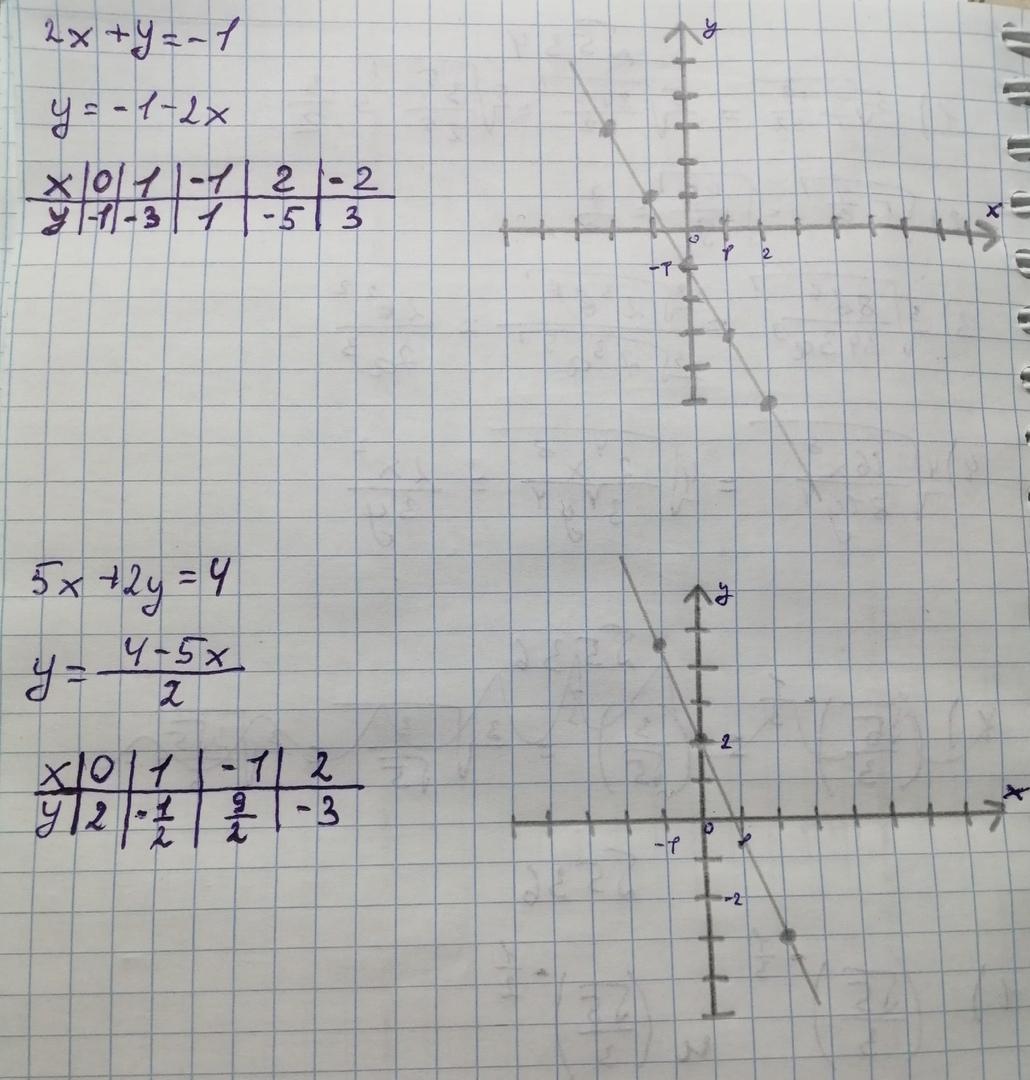 2x + y = -1
y = -1 - 2x
x | 0 | 1 | -1 | 2 | -2
y | -1 | -3 | 1 | -5 | 3
y
x
0 1 2
-1
5x + 2y = 4
y = (4 - 5x)/2
x | 0 | 1 | -1 | 2
y | 2 | -1/2 | 9/2 | -3
y
2
x
-1 0 1
-2